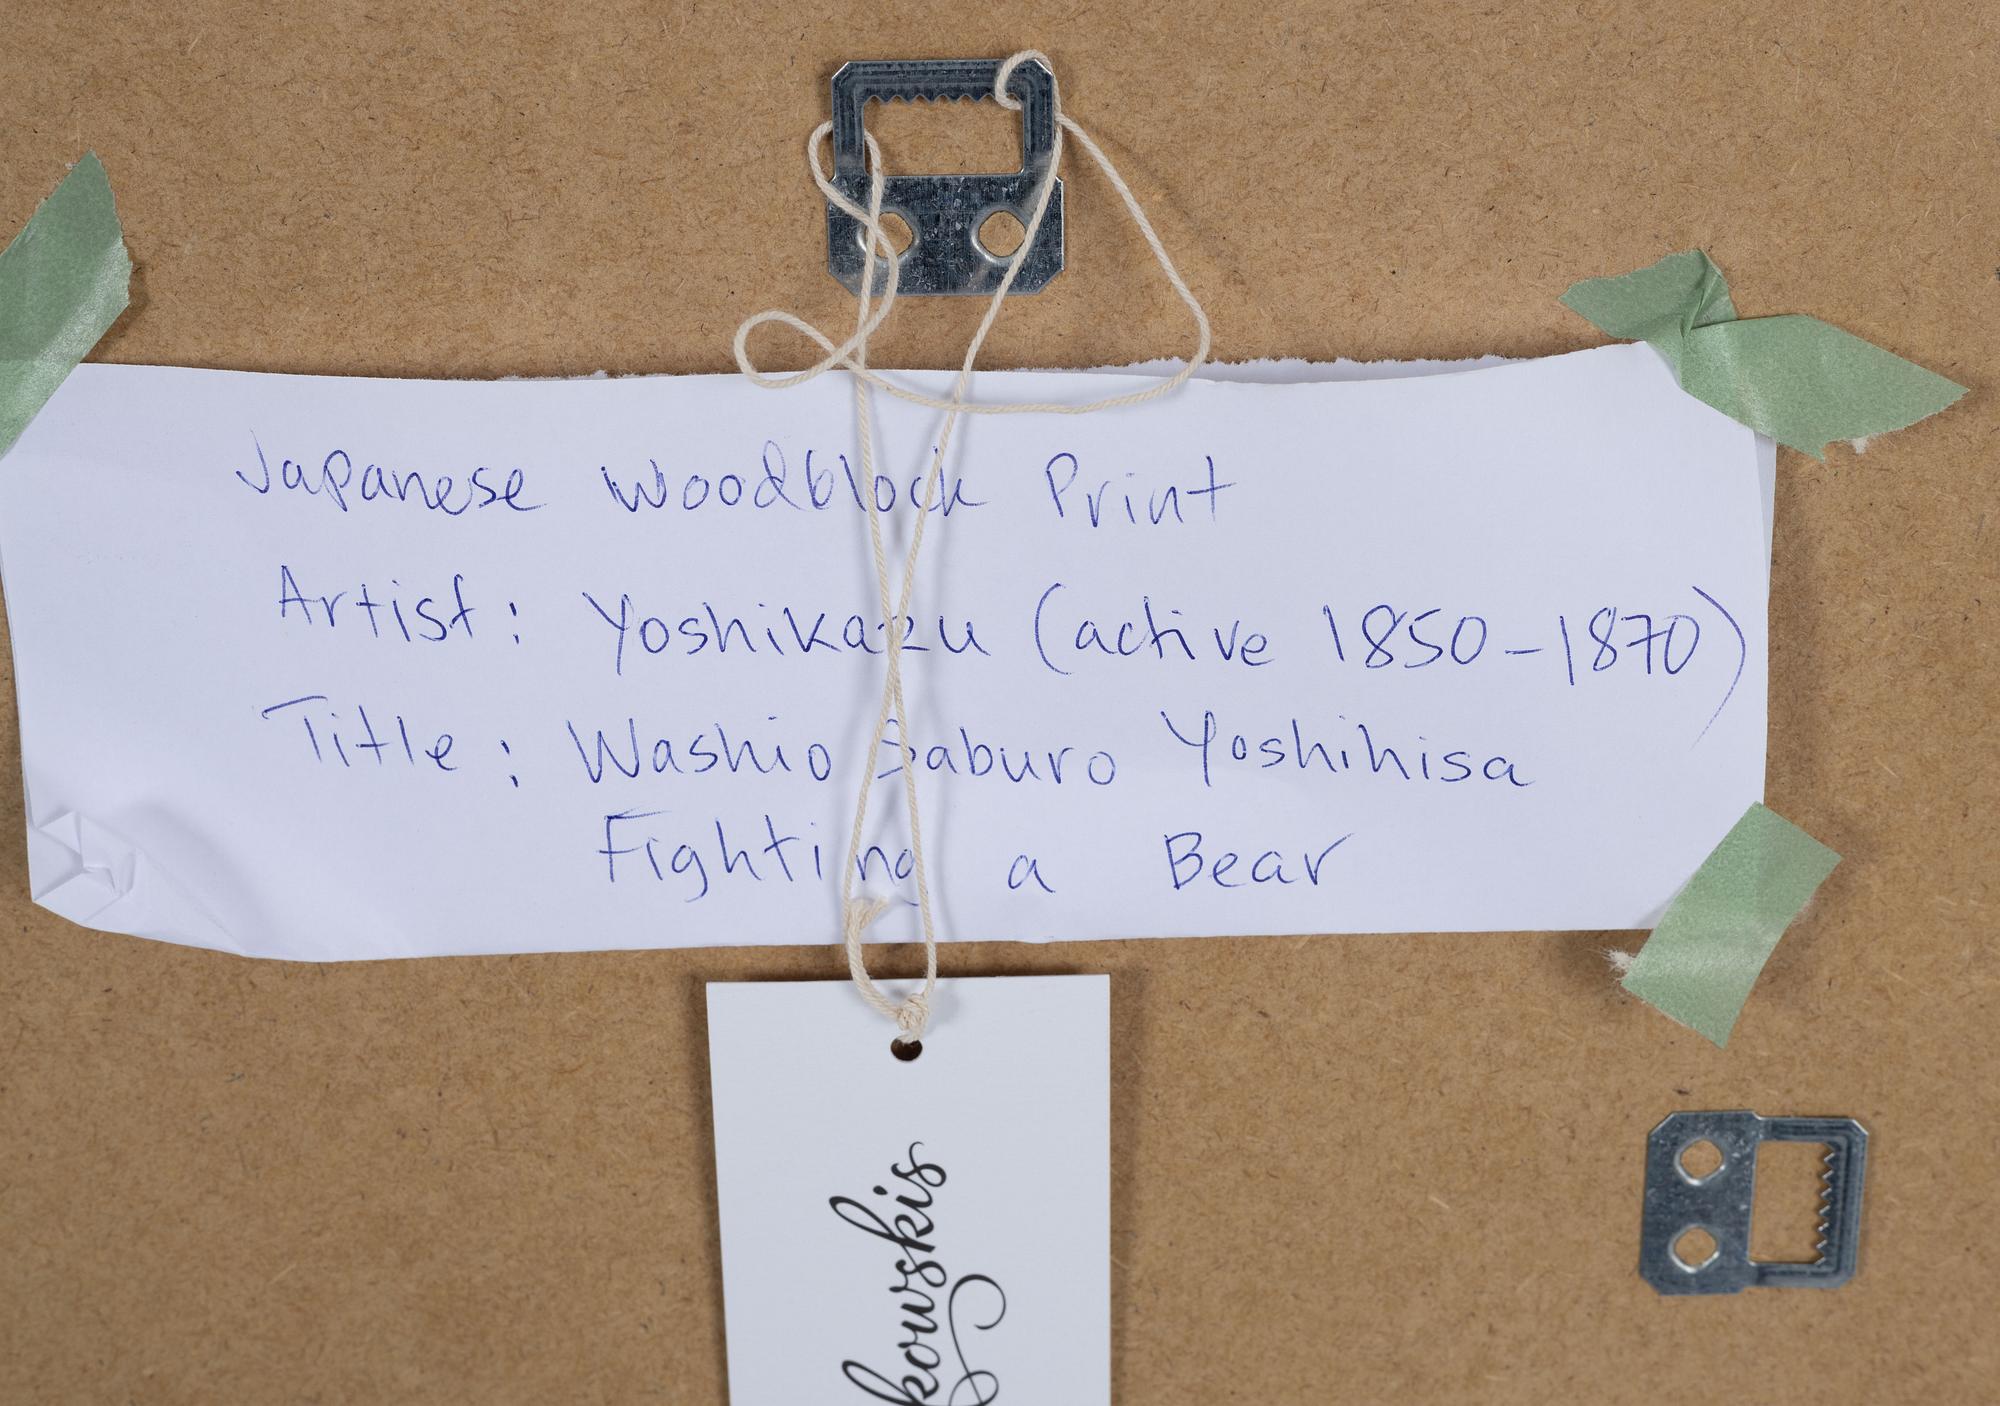 Japanese Woodblock Print
Artist: Yoshikazu (active 1850-1870)
Title: Washio Saburo Yoshihisa
Fighting a Bear
kowskis